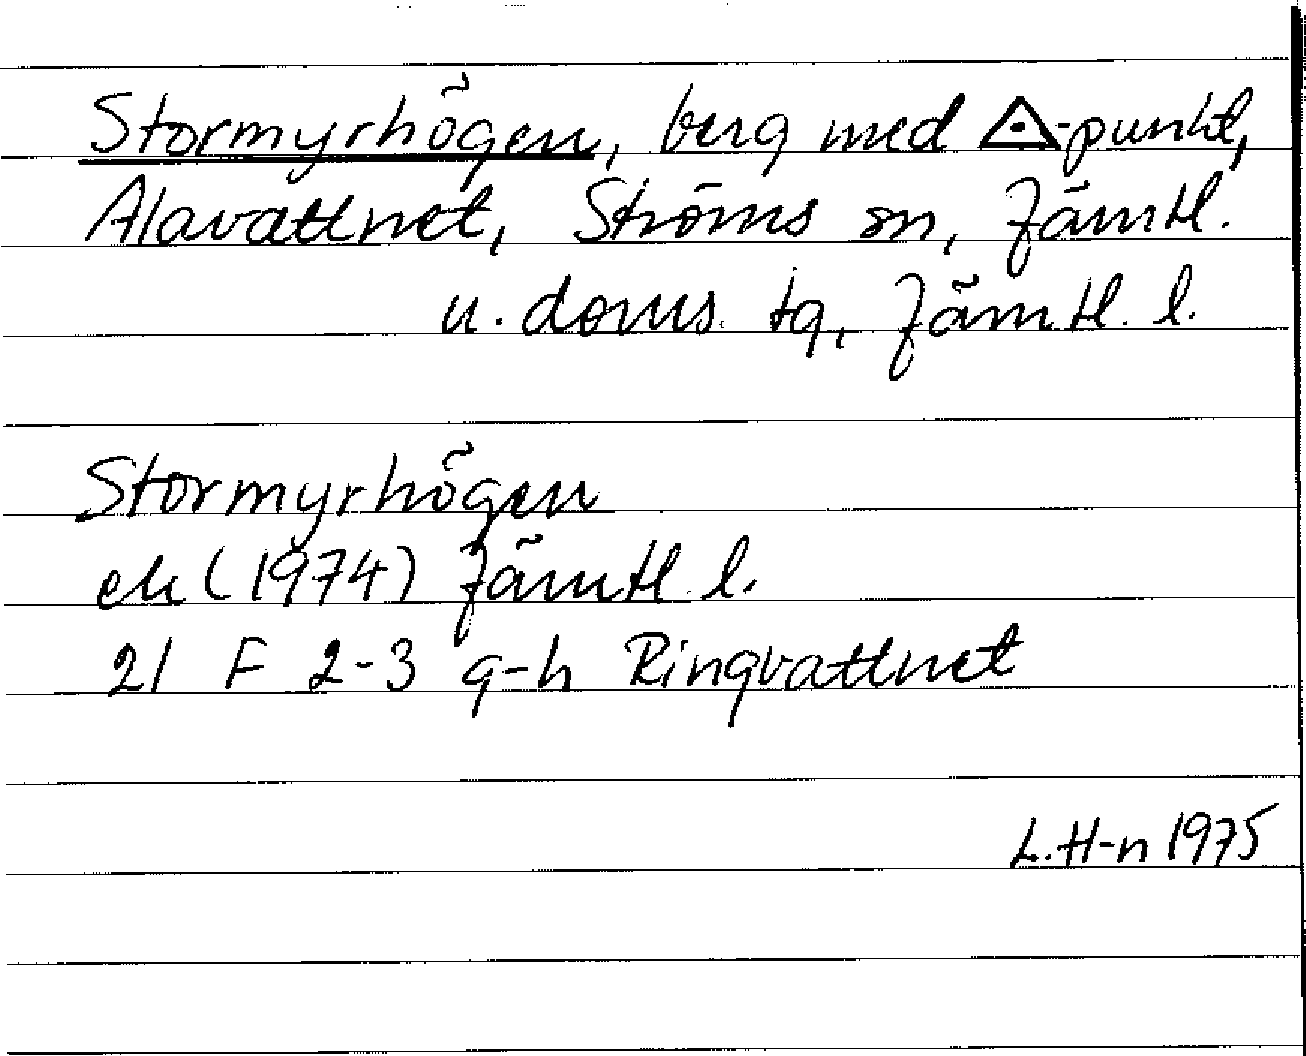 Stormyrhögen, berg med △-punkt,
Alavattnet, Ströms sn, Jämtl.
u. doms. tg, Jämtl. l.
Stormyrhögen
ek (1974) Jämtl l.
21 F 2-3 g-h Ringvattnet
L.H-n 1975